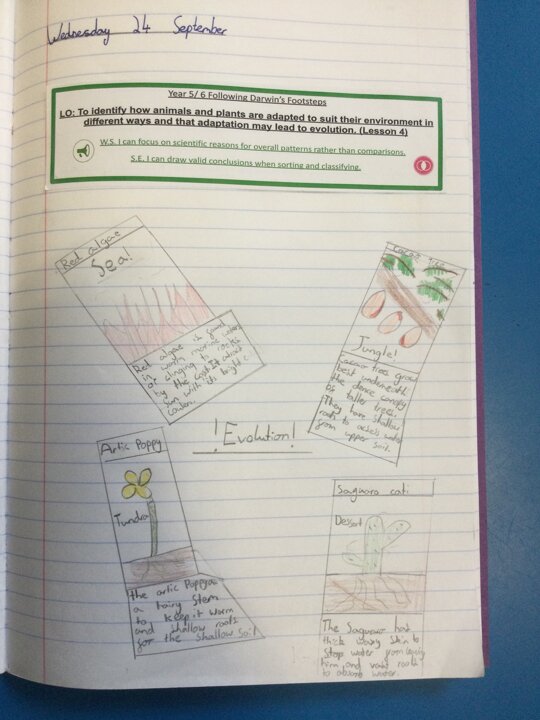 Wednesday 24 September
Year 5/ 6 Following Darwin's Footsteps
LO: To identify how animals and plants are adapted to suit their environment in
different ways and that adaptation may lead to evolution. (Lesson 4)
W.S. I can focus on scientific reasons for overall patterns rather than comparisons.
S.E. I can draw valid conclusions when sorting and classifying.
Red algae
Sea!
Red algae is found
in warm marine waters
or clinging to rocks
by the coast. It
sun with its bright
Cacao tree
Jungle!
Cacao trees grow
best underneath
the dence canopy
of taller trees.
They have shallow
roots to access water
from upper soil.
!Evolution!
Artic Poppy
Tundra
the artic Poppy
a hairy Stem
to keep it warm
and shallow roots
for the shallow Soil
Saguaro cati
Dessert
The Saguaro has
thick waxy Skin to
Stop water from
him and roots
to absorb water.